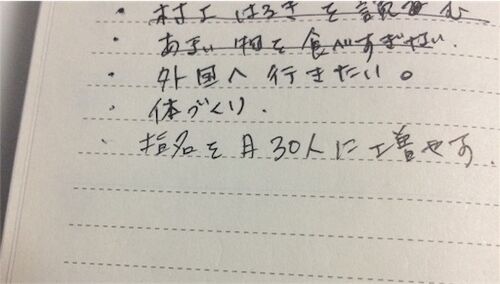 ・村上はるきを読む
・あまい物を食べすぎない.
・外国へ行きたい。
・体づくり.
・指名を月30人に増やす.